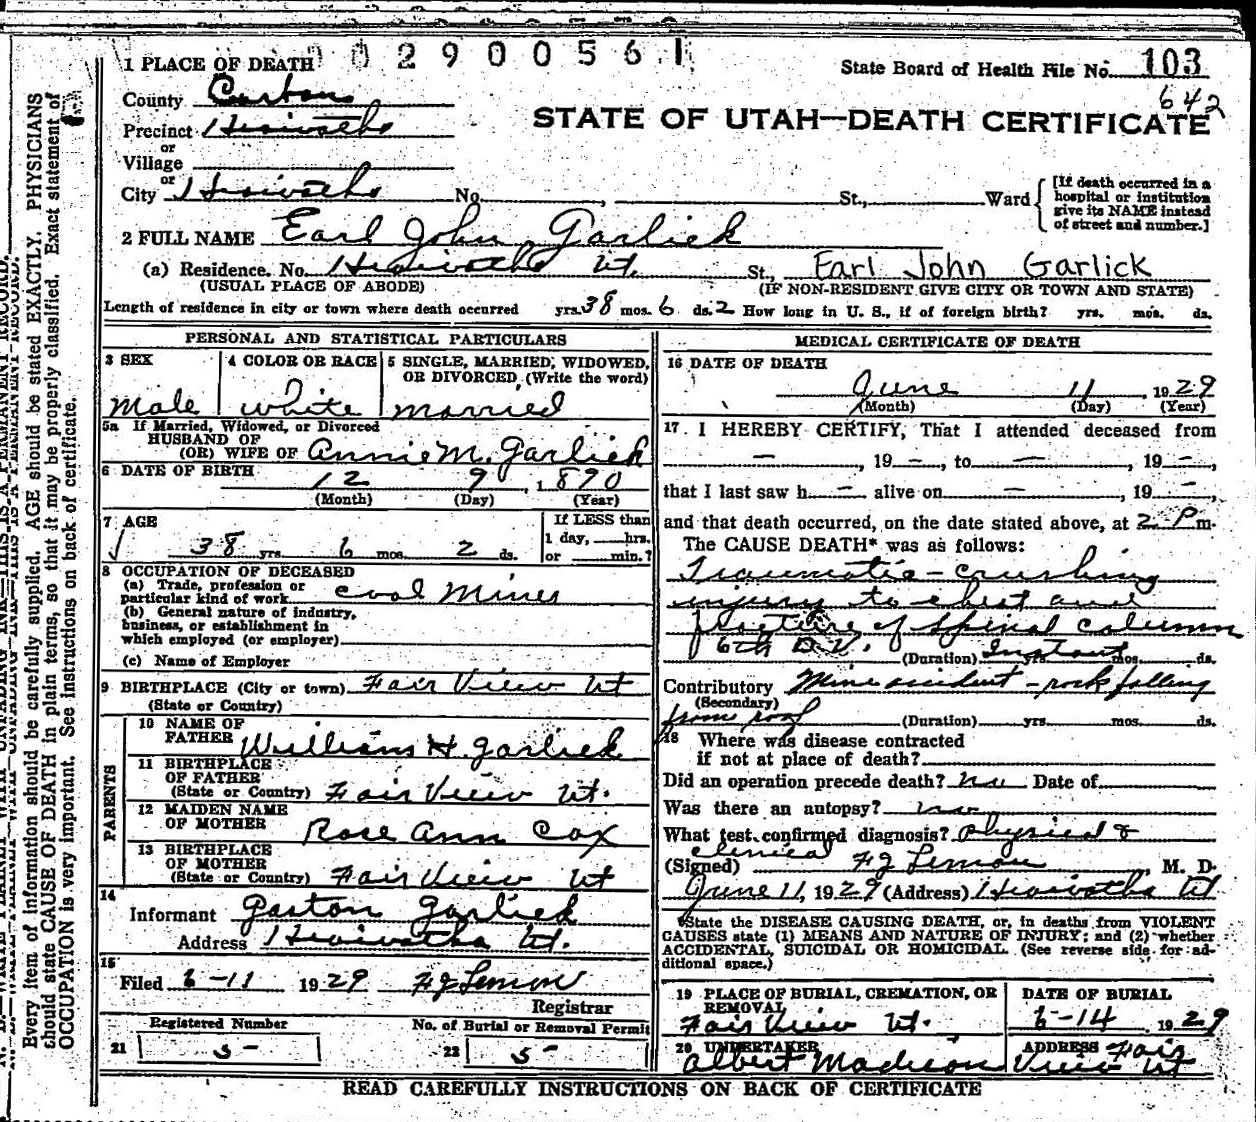 0 2 9 0 0 5 6 1
1 PLACE OF DEATH
State Board of Health File No. 103
642
County Carbon
STATE OF UTAH—DEATH CERTIFICATE
Precinct Hiawatha
or
Village
or
City Hiawatha No. , St., Ward
[If death occurred in a hospital or institution give its NAME instead of street and number.]
2 FULL NAME Earl John Garlick
(a) Residence. No. Hiawatha Ut. St., Earl John Garlick
(USUAL PLACE OF ABODE) (IF NON-RESIDENT GIVE CITY OR TOWN AND STATE)
Length of residence in city or town where death occurred yrs. 38 mos. 6 ds. 2 How long in U. S., if of foreign birth? yrs. mos. ds.
PERSONAL AND STATISTICAL PARTICULARS
3 SEX
Male
4 COLOR OR RACE
white
5 SINGLE, MARRIED, WIDOWED, OR DIVORCED, (Write the word)
married
5a If Married, Widowed, or Divorced
HUSBAND OF
(OR) WIFE OF Annie M. Garlick
6 DATE OF BIRTH
12 9, 1890
(Month) (Day) (Year)
7 AGE
38 yrs. 6 mos. 2 ds.
If LESS than
1 day, hrs.
or min.?
8 OCCUPATION OF DECEASED
(a) Trade, profession or
particular kind of work coal Miner
(b) General nature of industry,
business, or establishment in
which employed (or employer)
(c) Name of Employer
9 BIRTHPLACE (City or town) Fair View Ut
(State or Country)
PARENTS
10 NAME OF
FATHER William H. Garlick
11 BIRTHPLACE
OF FATHER
(State or Country) Fair View Ut.
12 MAIDEN NAME
OF MOTHER Rose Ann Cox
13 BIRTHPLACE
OF MOTHER
(State or Country) Fair View Ut
14
Informant Gaston Garlick
Address Hiawatha Ut.
15
Filed 6-11 1929 F J Lemon
Registrar
Registered Number
21 5-
No. of Burial or Removal Permit
22 5-
MEDICAL CERTIFICATE OF DEATH
16 DATE OF DEATH
June 11, 1929
(Month) (Day) (Year)
17. I HEREBY CERTIFY, That I attended deceased from
—, 19 —, to —, 19 —,
that I last saw h — alive on —, 19 —,
and that death occurred, on the date stated above, at 2 P m.
The CAUSE DEATH* was as follows:
Traumatic - crushing
injury to chest and
fracture of spinal column
6th D.V. (Duration) Instant yrs. mos. ds.
Contributory Mine accident - rock falling
(Secondary)
from roof (Duration) yrs. mos. ds.
18 Where was disease contracted
if not at place of death?
Did an operation precede death? no Date of
Was there an autopsy? no
What test confirmed diagnosis? Physical &
clinical
(Signed) F J Lemon, M. D.
June 11, 1929 (Address) Hiawatha Ut
*State the DISEASE CAUSING DEATH, or, in deaths from VIOLENT
CAUSES state (1) MEANS AND NATURE OF INJURY; and (2) whether
ACCIDENTAL, SUICIDAL OR HOMICIDAL. (See reverse side for ad-
ditional space.)
19 PLACE OF BURIAL, CREMATION, OR
REMOVAL
Fair View Ut.
DATE OF BURIAL
6-14, 1929
20 UNDERTAKER
Albert Madison
ADDRESS Fair
View Ut
READ CAREFULLY INSTRUCTIONS ON BACK OF CERTIFICATE
Every item of information should be carefully supplied. AGE should be stated EXACTLY. PHYSICIANS
should state CAUSE OF DEATH in plain terms, so that it may be properly classified. Exact statement of
OCCUPATION is very important. See instructions on back of certificate.